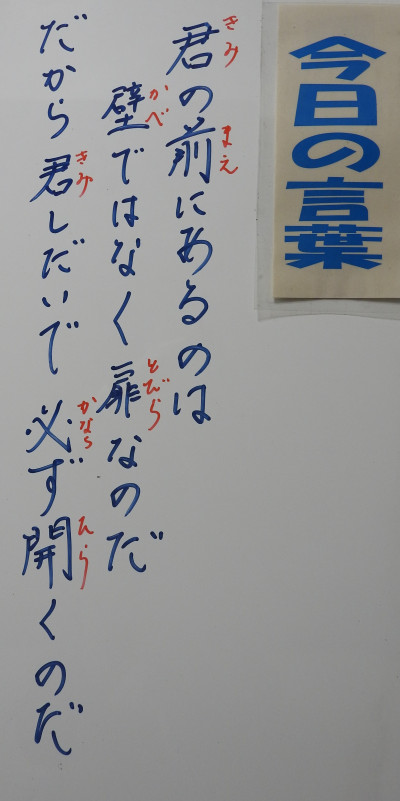 今日の言葉
君の前にあるのは
壁ではなく扉なのだ
だから君しだいで必ず開くのだ
きみ
まえ
かべ
とびら
きみ
かなら
ひら